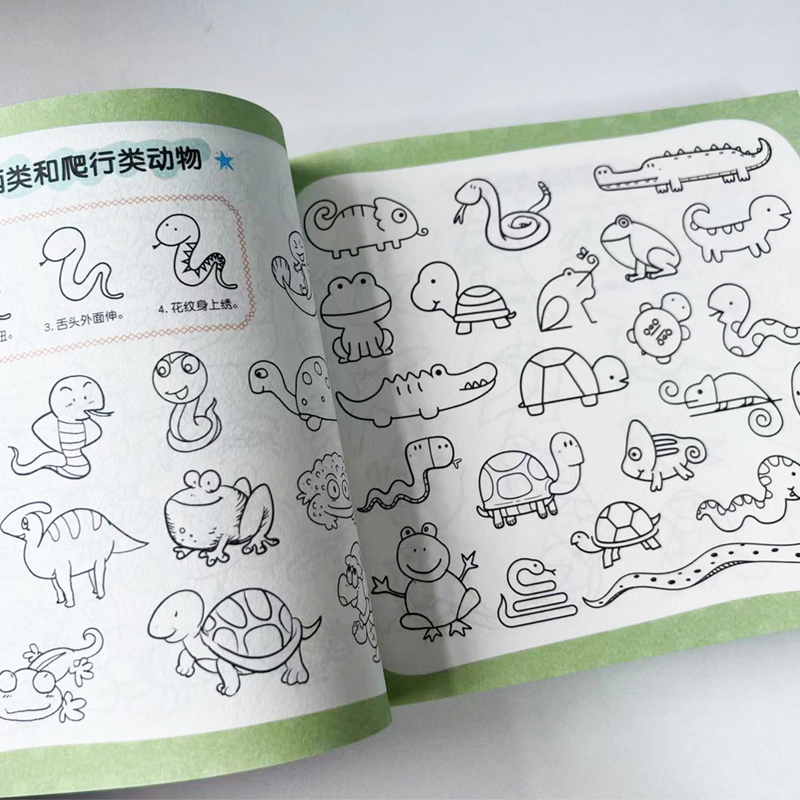 类和爬行类动物
扭。
3.舌头外面伸。
4.花纹身上绣。